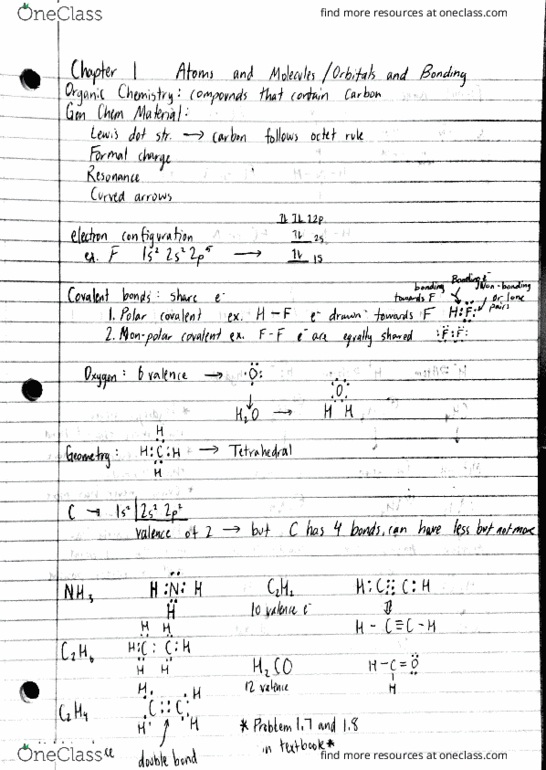 OneClass
find more resources at oneclass.com
Chapter 1 Atoms and Molecules / Orbitals and Bonding
Organic Chemistry: compounds that contain Carbon
Gen Chem Material:
Lewis dot str. → carbon follows octet rule
Formal charge
Resonance
Curved arrows
electron configuration
ex. F 1s² 2s² 2p⁵ →
2p
2s
1s
Covalent bonds: share e⁻
1. Polar covalent ex. H-F e⁻ drawn towards F
bonding towards F
Bonding e⁻
Non-bonding or lone pairs
H:F:
2. Non-polar covalent ex. F-F e⁻ are equally shared :F:F:
Oxygen: 6 valence → ·O:
↓
H₂O → O
H H
Geometry:
H
H:C:H → Tetrahedral
H
C → 1s² 2s² 2p²
valence of 2 → but C has 4 bonds, can have less but not more
NH₃ H:N:H
H
C₂H₂
10 valence e⁻
H:C:::C:H
⇓
H-C≡C-H
C₂H₆
H H
H:C:C:H
H H
H₂CO
12 valence
H-C=O
H
C₂H₄
H H
C::C
H H
double bond
* Problem 1.7 and 1.8
in textbook *
OneClass
find more resources at oneclass.com